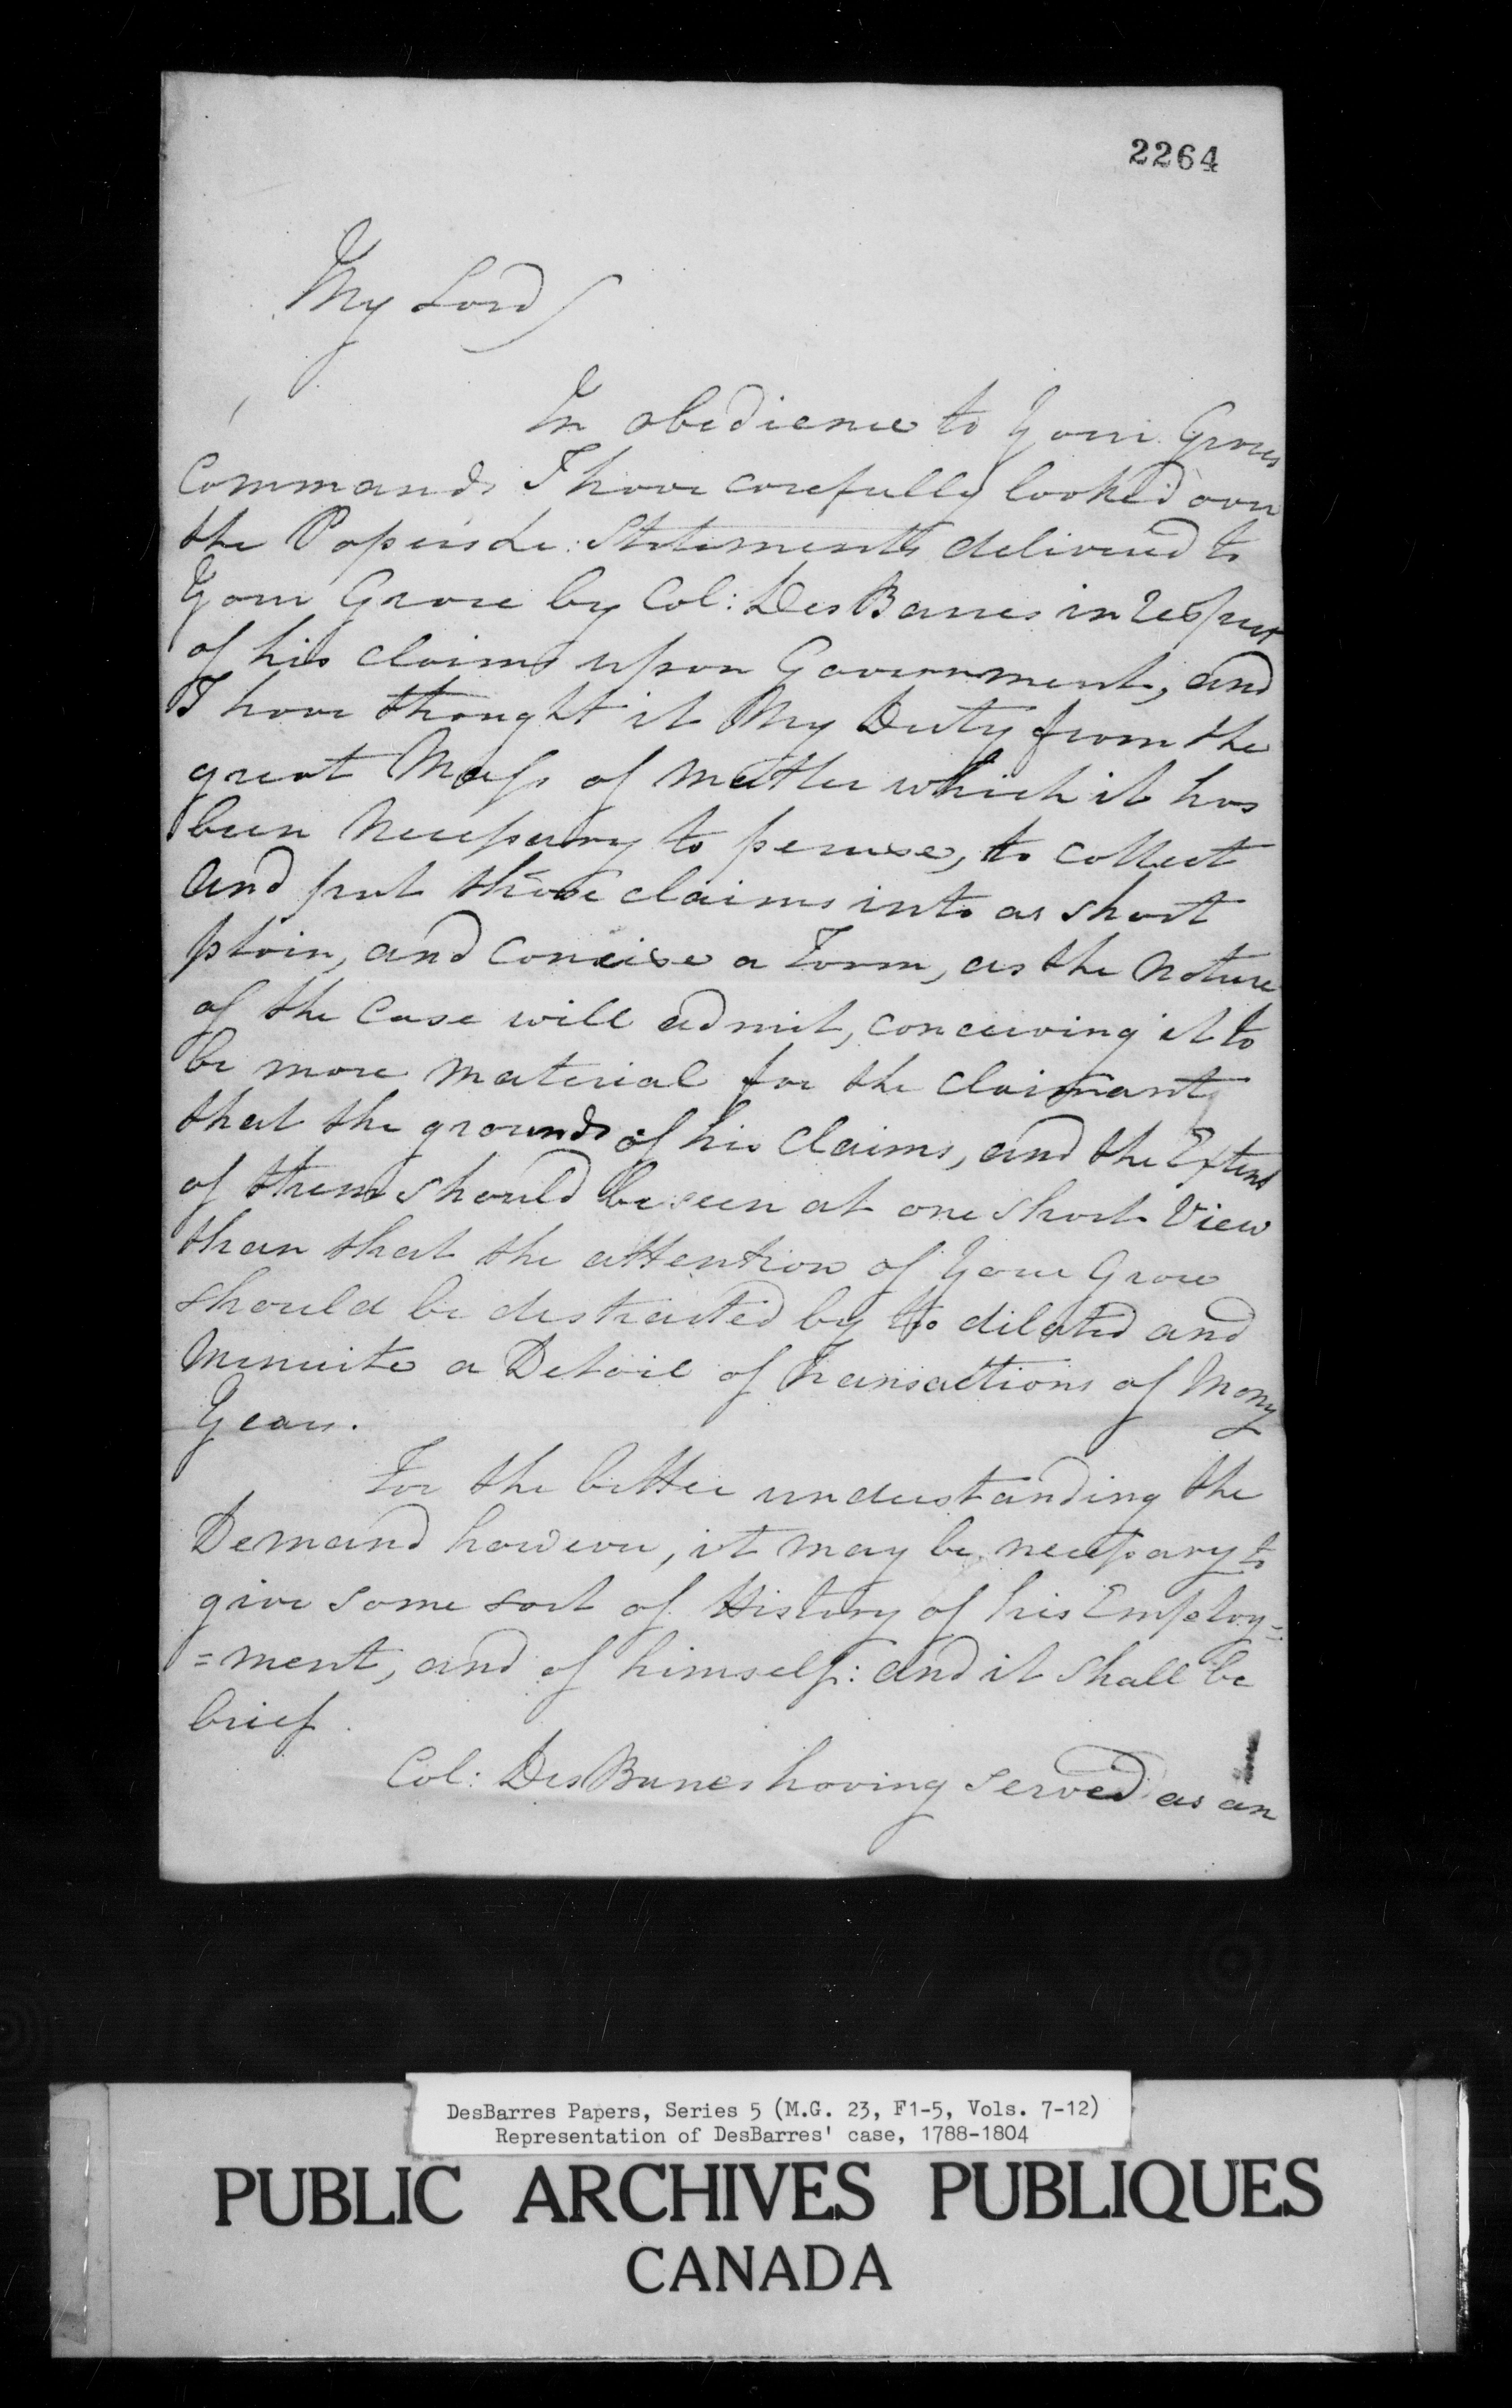 2264
My Lord
In obedience to Your Graces
Commands I have carefully looked over
the Papers &c: Statements delivered to
Your Grace by Col: DesBarres in respect
of his claims upon Government, and
I have thought it My Duty from the
great Mass of matter which it has
been Necessary to peruse, to collect
and put those claims into as short
plain, and Concise a Form, as the Nature
of the Case will admit, conceiving it to
be more Material for the Claimant
that the grounds of his Claims, and the Extent
of them should be seen at one short View
than that the attention of Your Grace
should be distracted by to dilated and
Minuite a Detail of Transactions of Many
Years.
For the better understanding the
Demand however, it may be necessary to
give some sort of History of his Employ=
=ment, and of himself: and it shall be
brief.
Col: DesBarres having served as an
DesBarres Papers, Series 5 (M.G. 23, F1-5, Vols. 7-12)
Representation of DesBarres' case, 1788-1804
PUBLIC ARCHIVES PUBLIQUES
CANADA